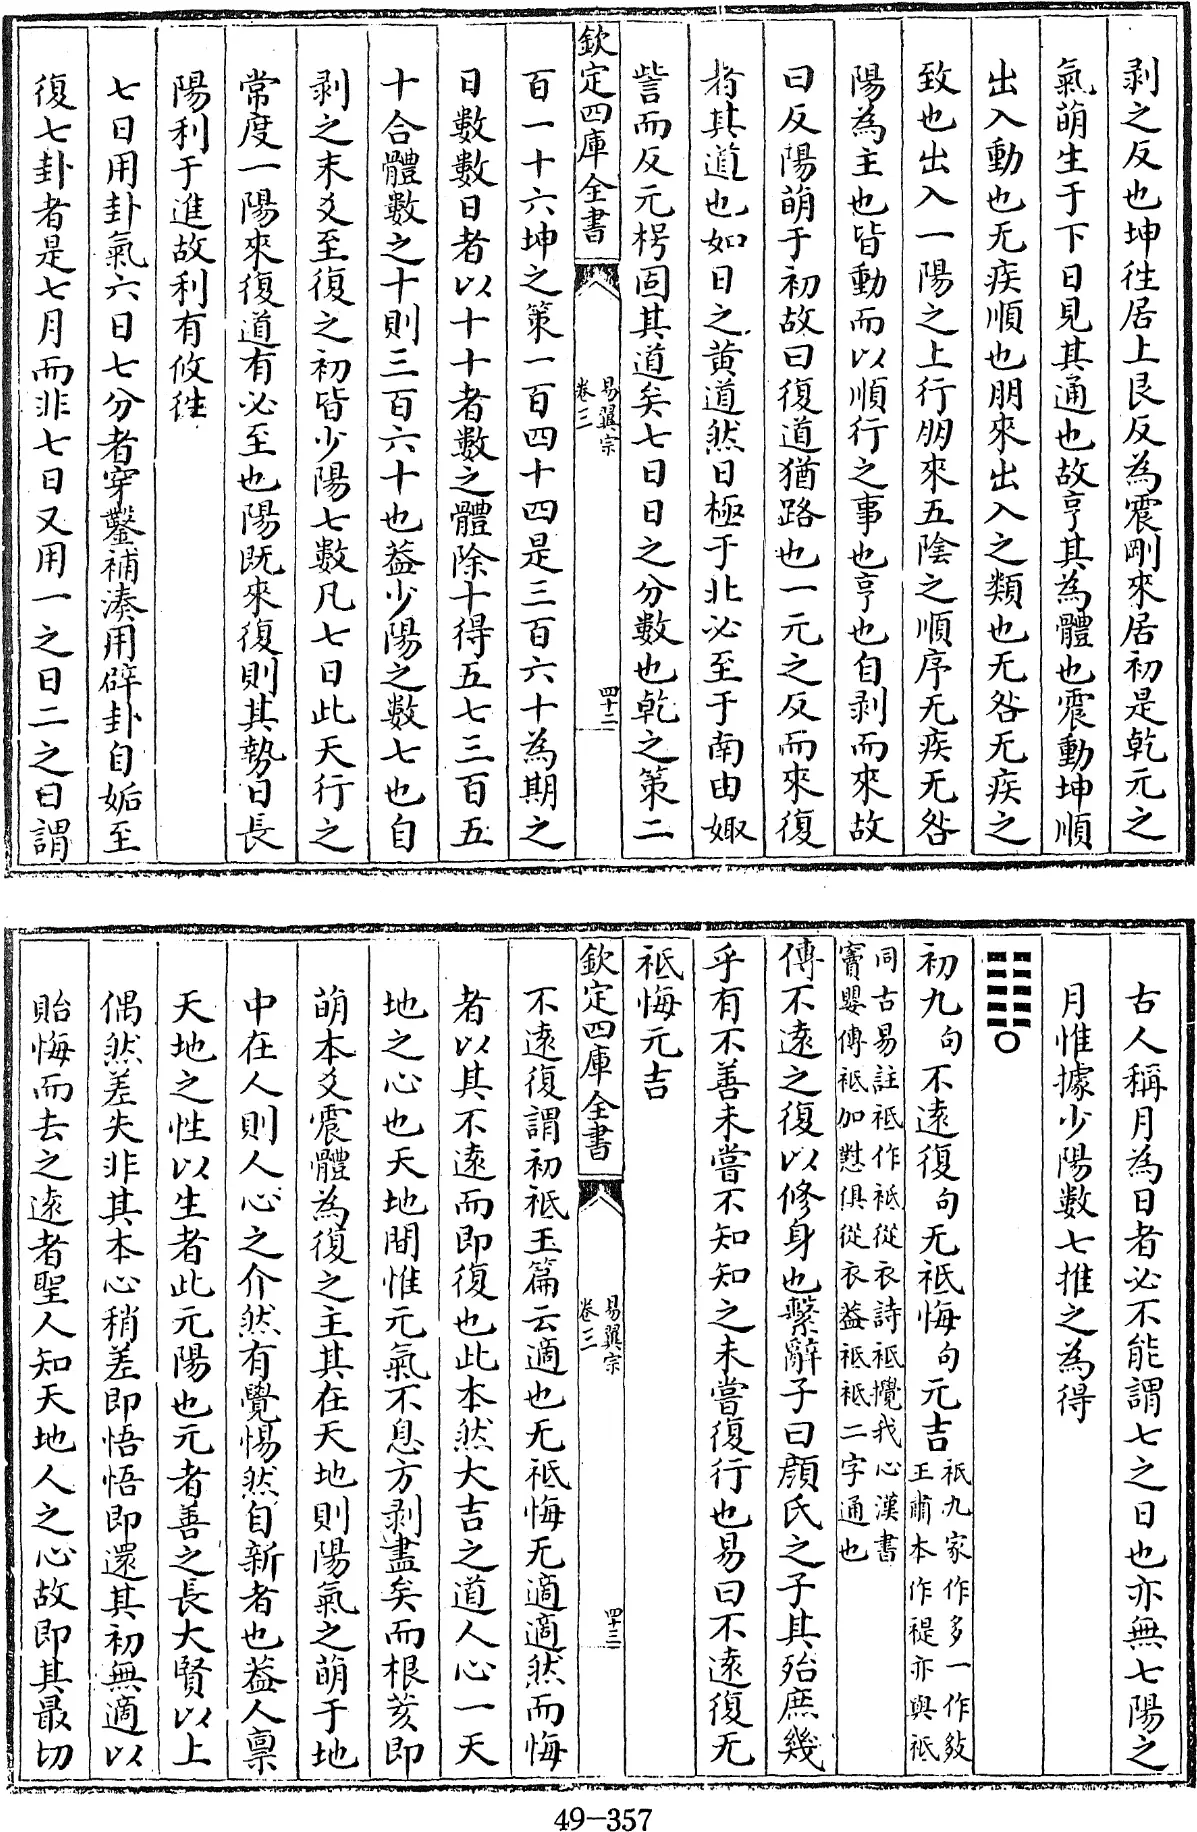 剥之反也坤往居上艮反為震剛來居初是乾元之
氣萌生于下日見其通也故亨其為體也震動坤順
出入動也无疾順也朋來出入之類也无咎无疾之
致也出入一陽之上行朋來五陰之順序无疾无咎
陽為主也皆動而以順行之事也亨也自剥而來故
曰反陽萌于初故曰復道猶路也一元之反而來復
者其道也如日之黄道然日極于北必至于南由娵
訾而反元枵固其道矣七日日之分數也乾之策二
欽定四庫全書
易翼宗
卷三
四十二
百一十六坤之策一百四十四是三百六十為期之
日數數日者以十十者數之體除十得五七三百五
十合體數之十則三百六十也葢少陽之數七也自
剥之末爻至復之初皆少陽七數凡七日此天行之
常度一陽來復道有必至也陽既來復則其勢日長
陽利于進故利有攸往
七日用卦氣六日七分者穿鑿補湊用辟卦自姤至
復七卦者是七月而非七日又用一之日二之日謂
古人稱月為日者必不能謂七之日也亦無七陽之
月惟據少陽數七推之為得
初九句不遠復句无祗悔句元吉祇九家作多一作敍
王肅本作禔亦與祇
同古易註祗作袛從衣詩祇攪我心漢書
竇嬰傳祗加懟俱從衣葢祗祇二字通也
傳不遠之復以修身也繫辭子曰顔氏之子其殆庶幾
乎有不善未嘗不知知之未嘗復行也易曰不遠復无
祗悔元吉
欽定四庫全書
易翼宗
卷三
四十三
不遠復謂初祗玉篇云適也无祗悔无適適然而悔
者以其不遠而即復也此本然大吉之道人心一天
地之心也天地間惟元氣不息方剥盡矣而根荄即
萌本爻震體為復之主其在天地則陽氣之萌于地
中在人則人心之介然有覺惕然自新者也葢人禀
天地之性以生者此元陽也元者善之長大賢以上
偶然差失非其本心稍差即悟悟即還其初無適以
貽悔而去之遠者聖人知天地人之心故即其最切
49-357